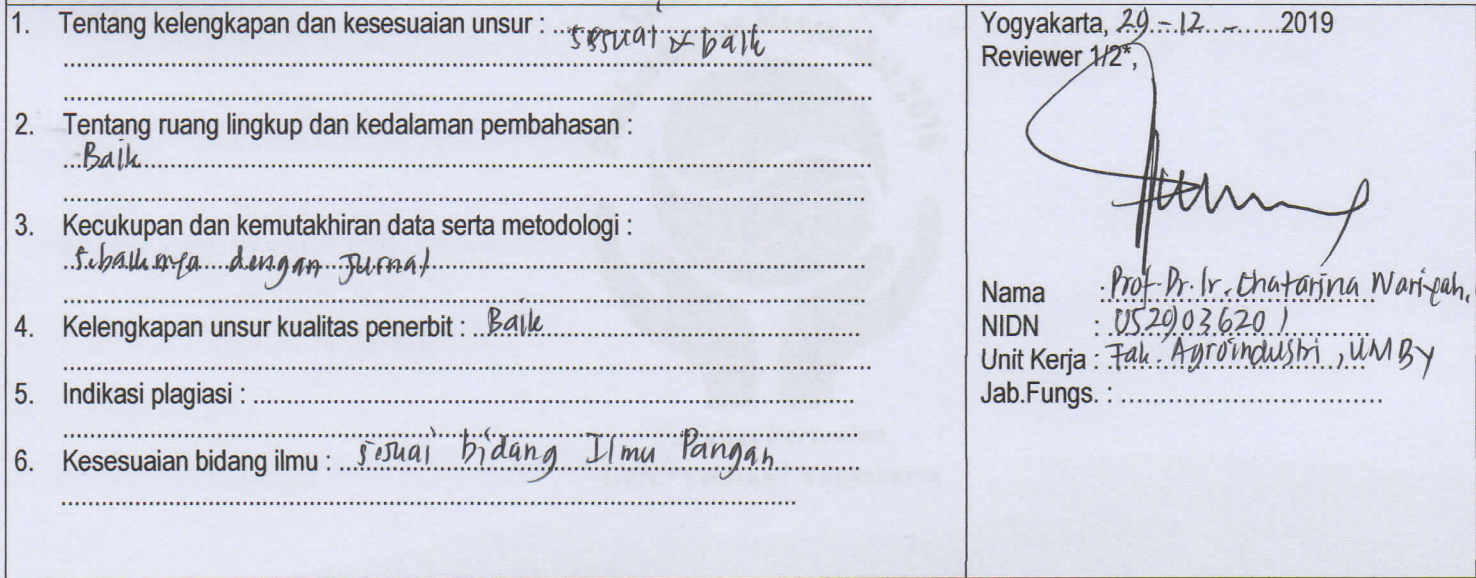 1. Tentang kelengkapan dan kesesuaian unsur : sesuai & baik
2. Tentang ruang lingkup dan kedalaman pembahasan :
Baik
3. Kecukupan dan kemutakhiran data serta metodologi :
sebaiknya dengan Jurnal
4. Kelengkapan unsur kualitas penerbit : Baik
5. Indikasi plagiasi :
6. Kesesuaian bidang ilmu : sesuai bidang Ilmu Pangan
Yogyakarta, 29-12-2019
Reviewer 1/2*,
Nama : Prof. Dr. Ir. Chatarina Wariyah,
NIDN : 0529036201
Unit Kerja : Fak. Agroindustri, UMBY
Jab.Fungs. :